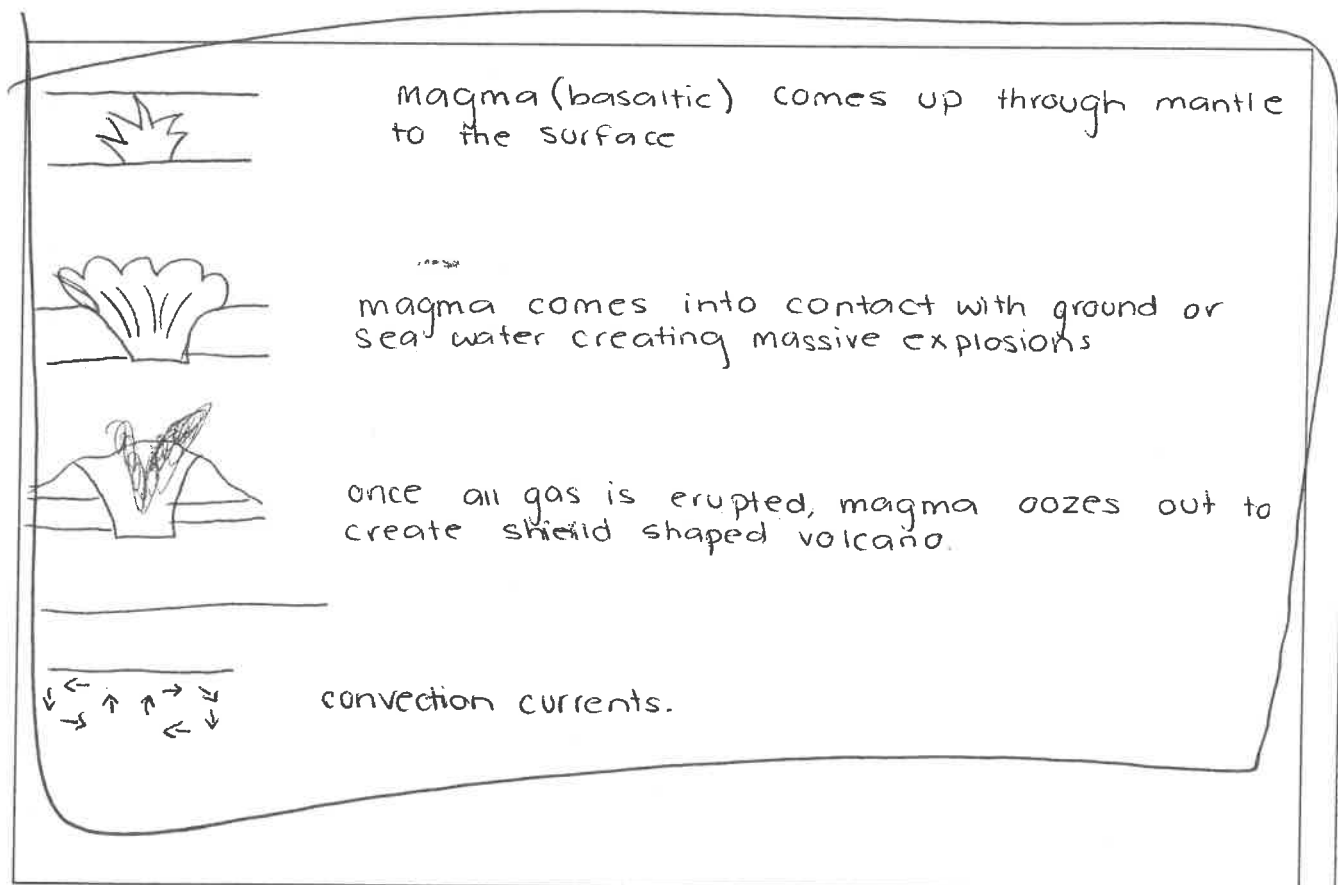 magma (basaltic) comes up through mantle
to the surface
magma comes into contact with ground or
sea water creating massive explosions
once all gas is erupted, magma oozes out to
create shield shaped volcano.
convection currents.